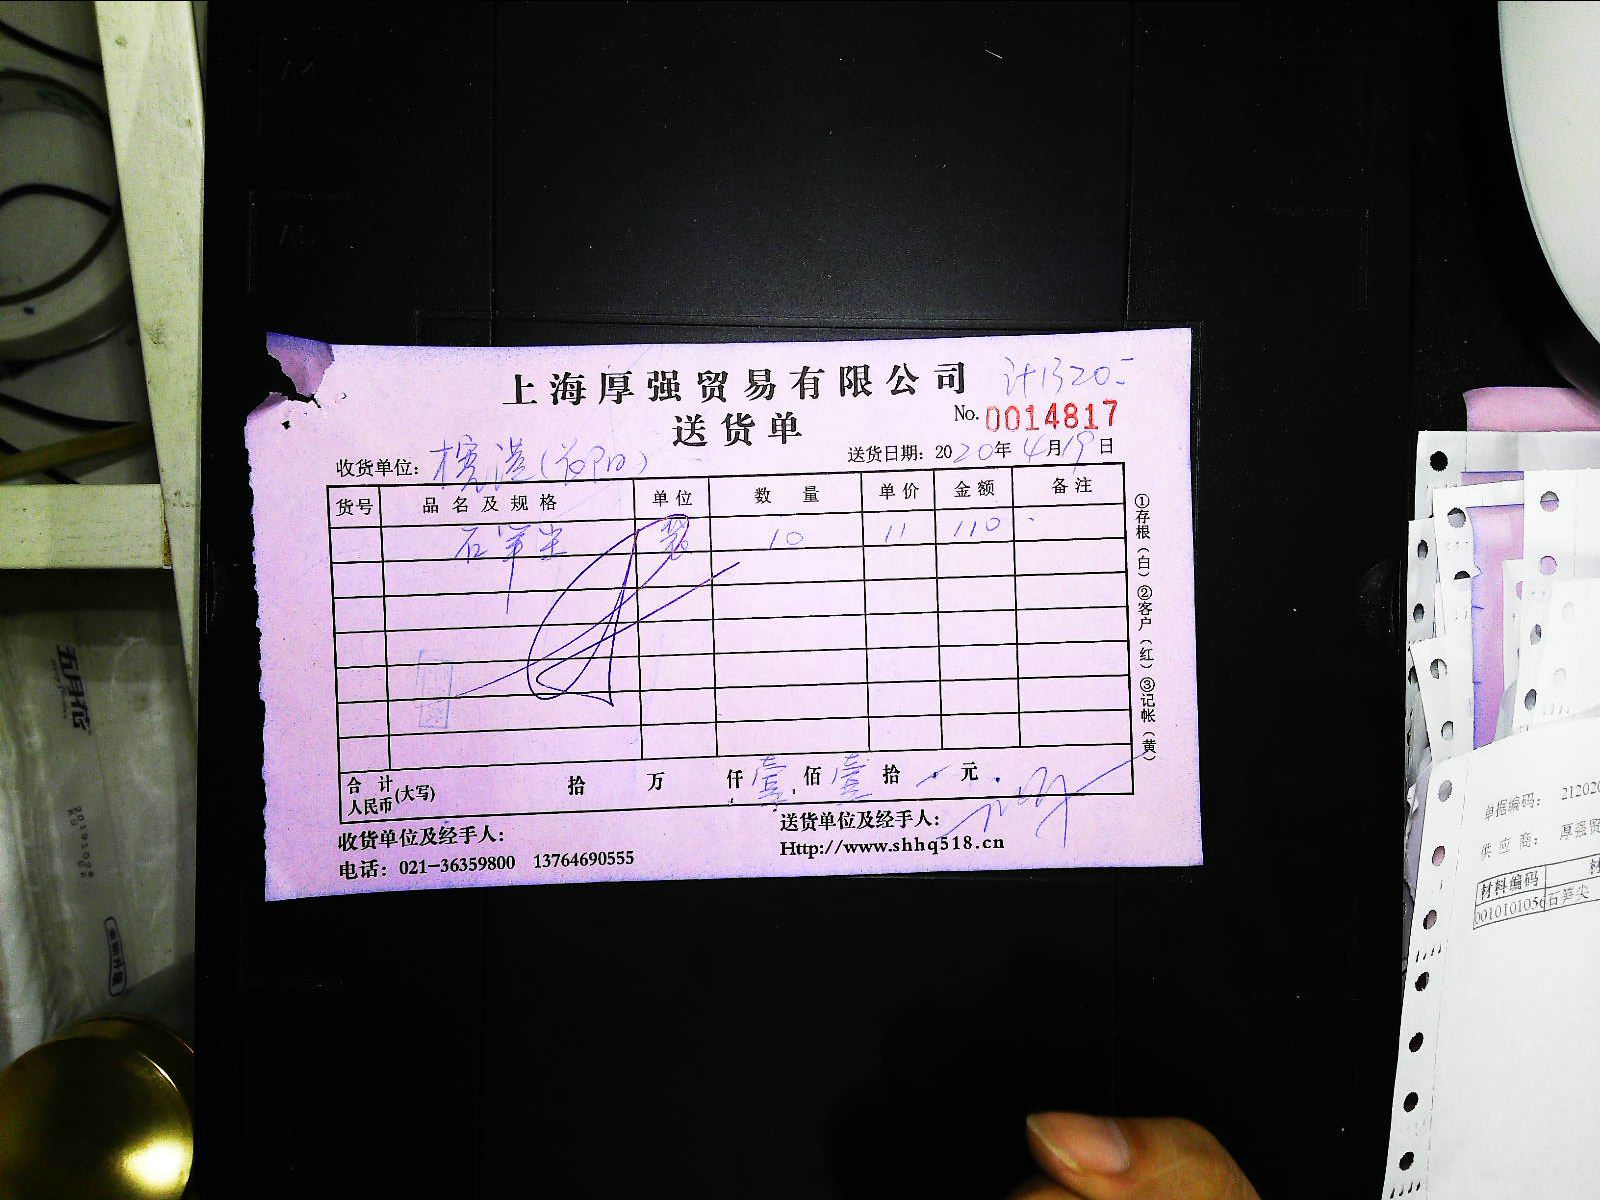 上海厚强贸易有限公司 计1320-
送货单 No.0014817
收货单位: 送货日期: 2020年4月19日
货号 品名及规格 单位 数量 单价 金额 备注
石笋尖 袋 10 11 110
合计人民币(大写) 拾 万 仟 壹佰 壹拾 元
收货单位及经手人: 送货单位及经手人:
电话: 021-36359800 13764690555 Http://www.shhq518.cn
①存根(白) ②客户(红) ③记帐(黄)
五月花
20191022
单据编码: 212020
供应商: 厚强贸
材料编码 材
0010101056 石笋尖